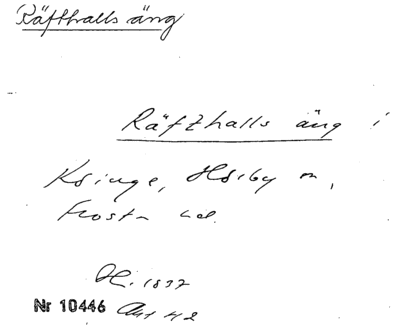 Räfthalls äng
Räfzhalls äng i
Ksinge, Hörby sn,
Frosta hd.
H. 1837
Nr 10446 Akt 42